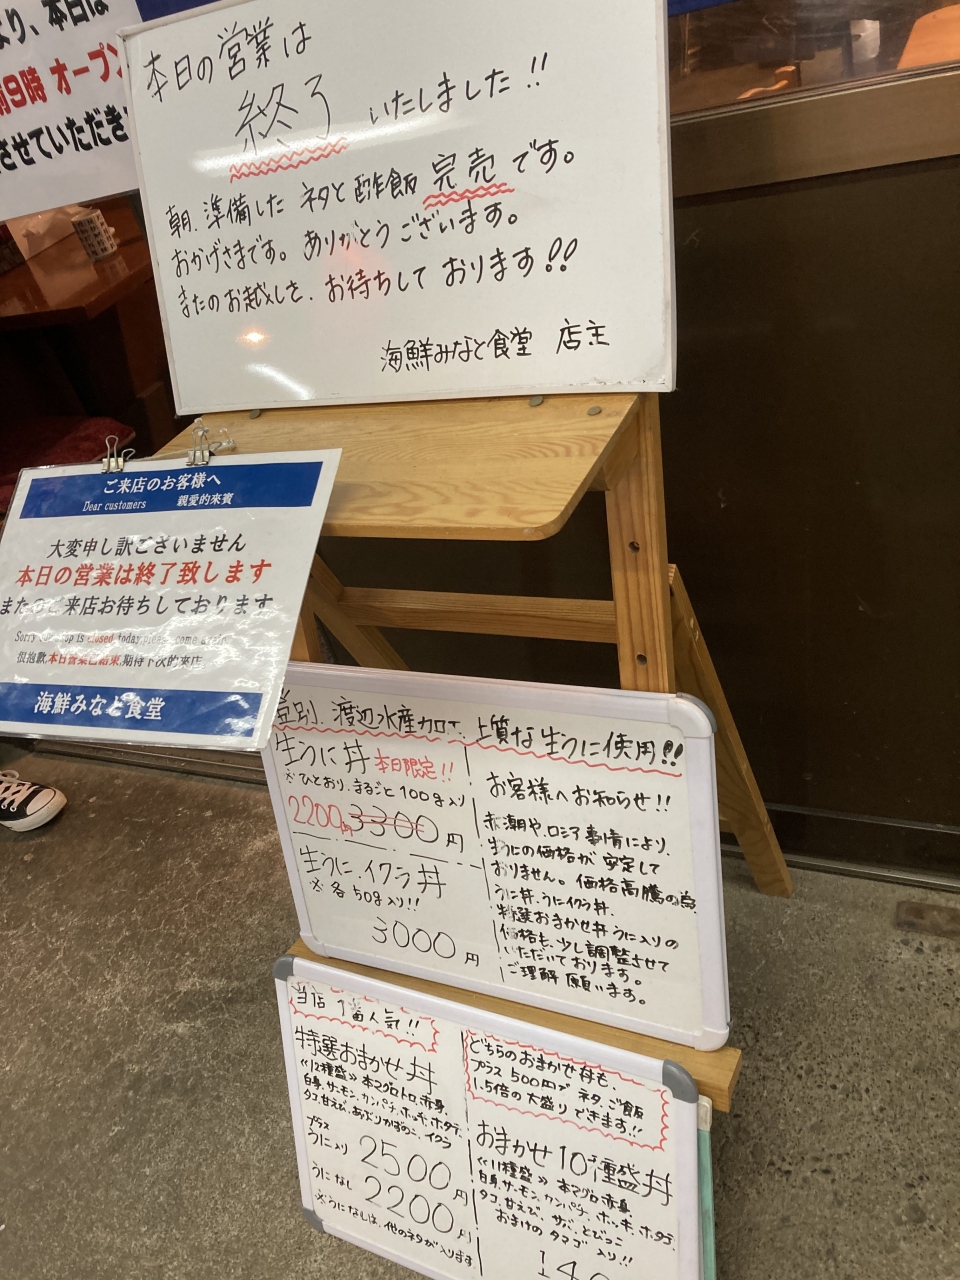 より、本日は
9時 オープン
させていただき
本日の営業は
終了 いたしました!!
朝、準備した ネタと 酢飯 完売 です。
おかげさまです。ありがとうございます。
またのお越しを、お待ちして おります!!
海鮮みなと食堂 店主
ご来店のお客様へ
Dear customers 親愛的來賓
大変申し訳ございません
本日の営業は終了致します
またのご来店お待ちしております
Sorry is closed today, come
很抱歉,本日営業已結束,期待下次的來店
海鮮みなと食堂
登別、渡辺水産加工、上質な生うに使用!!
生うに丼 本日限定!!
※ひとおり、まるごと100g入り
2200円 3300円
生うに、イクラ丼
※各50g入り!!
3000円
お客様へお知らせ!!
赤潮や、ロシア事情により、
生うにの価格が安定して
おりません。価格高騰の為、
うに丼、うにイクラ丼、
特選おまかせ丼うに入りの
価格も、少し調整させて
いただいております。
ご理解願います。
当店 1番人気!!
特選おまかせ丼
《12種盛》本マグロトロ、赤身、
白身、サーモン、カンパチ、ホッキ、ホタテ、
タコ、甘えび、あぶりかずのこ、イクラ
プラス
うに入り 2500円
うになし 2200円
※うになしは、他のネタが入ります
どちらのおまかせ丼も、
プラス500円で ネタ、ご飯
1.5倍の大盛りできます!!
おまかせ10種盛丼
《11種盛》本マグロ赤身
白身、サーモン、カンパチ、ホッキ、ホタテ、
タコ、甘えび、サバ、とびっこ
おまけのタマゴ 入り!!